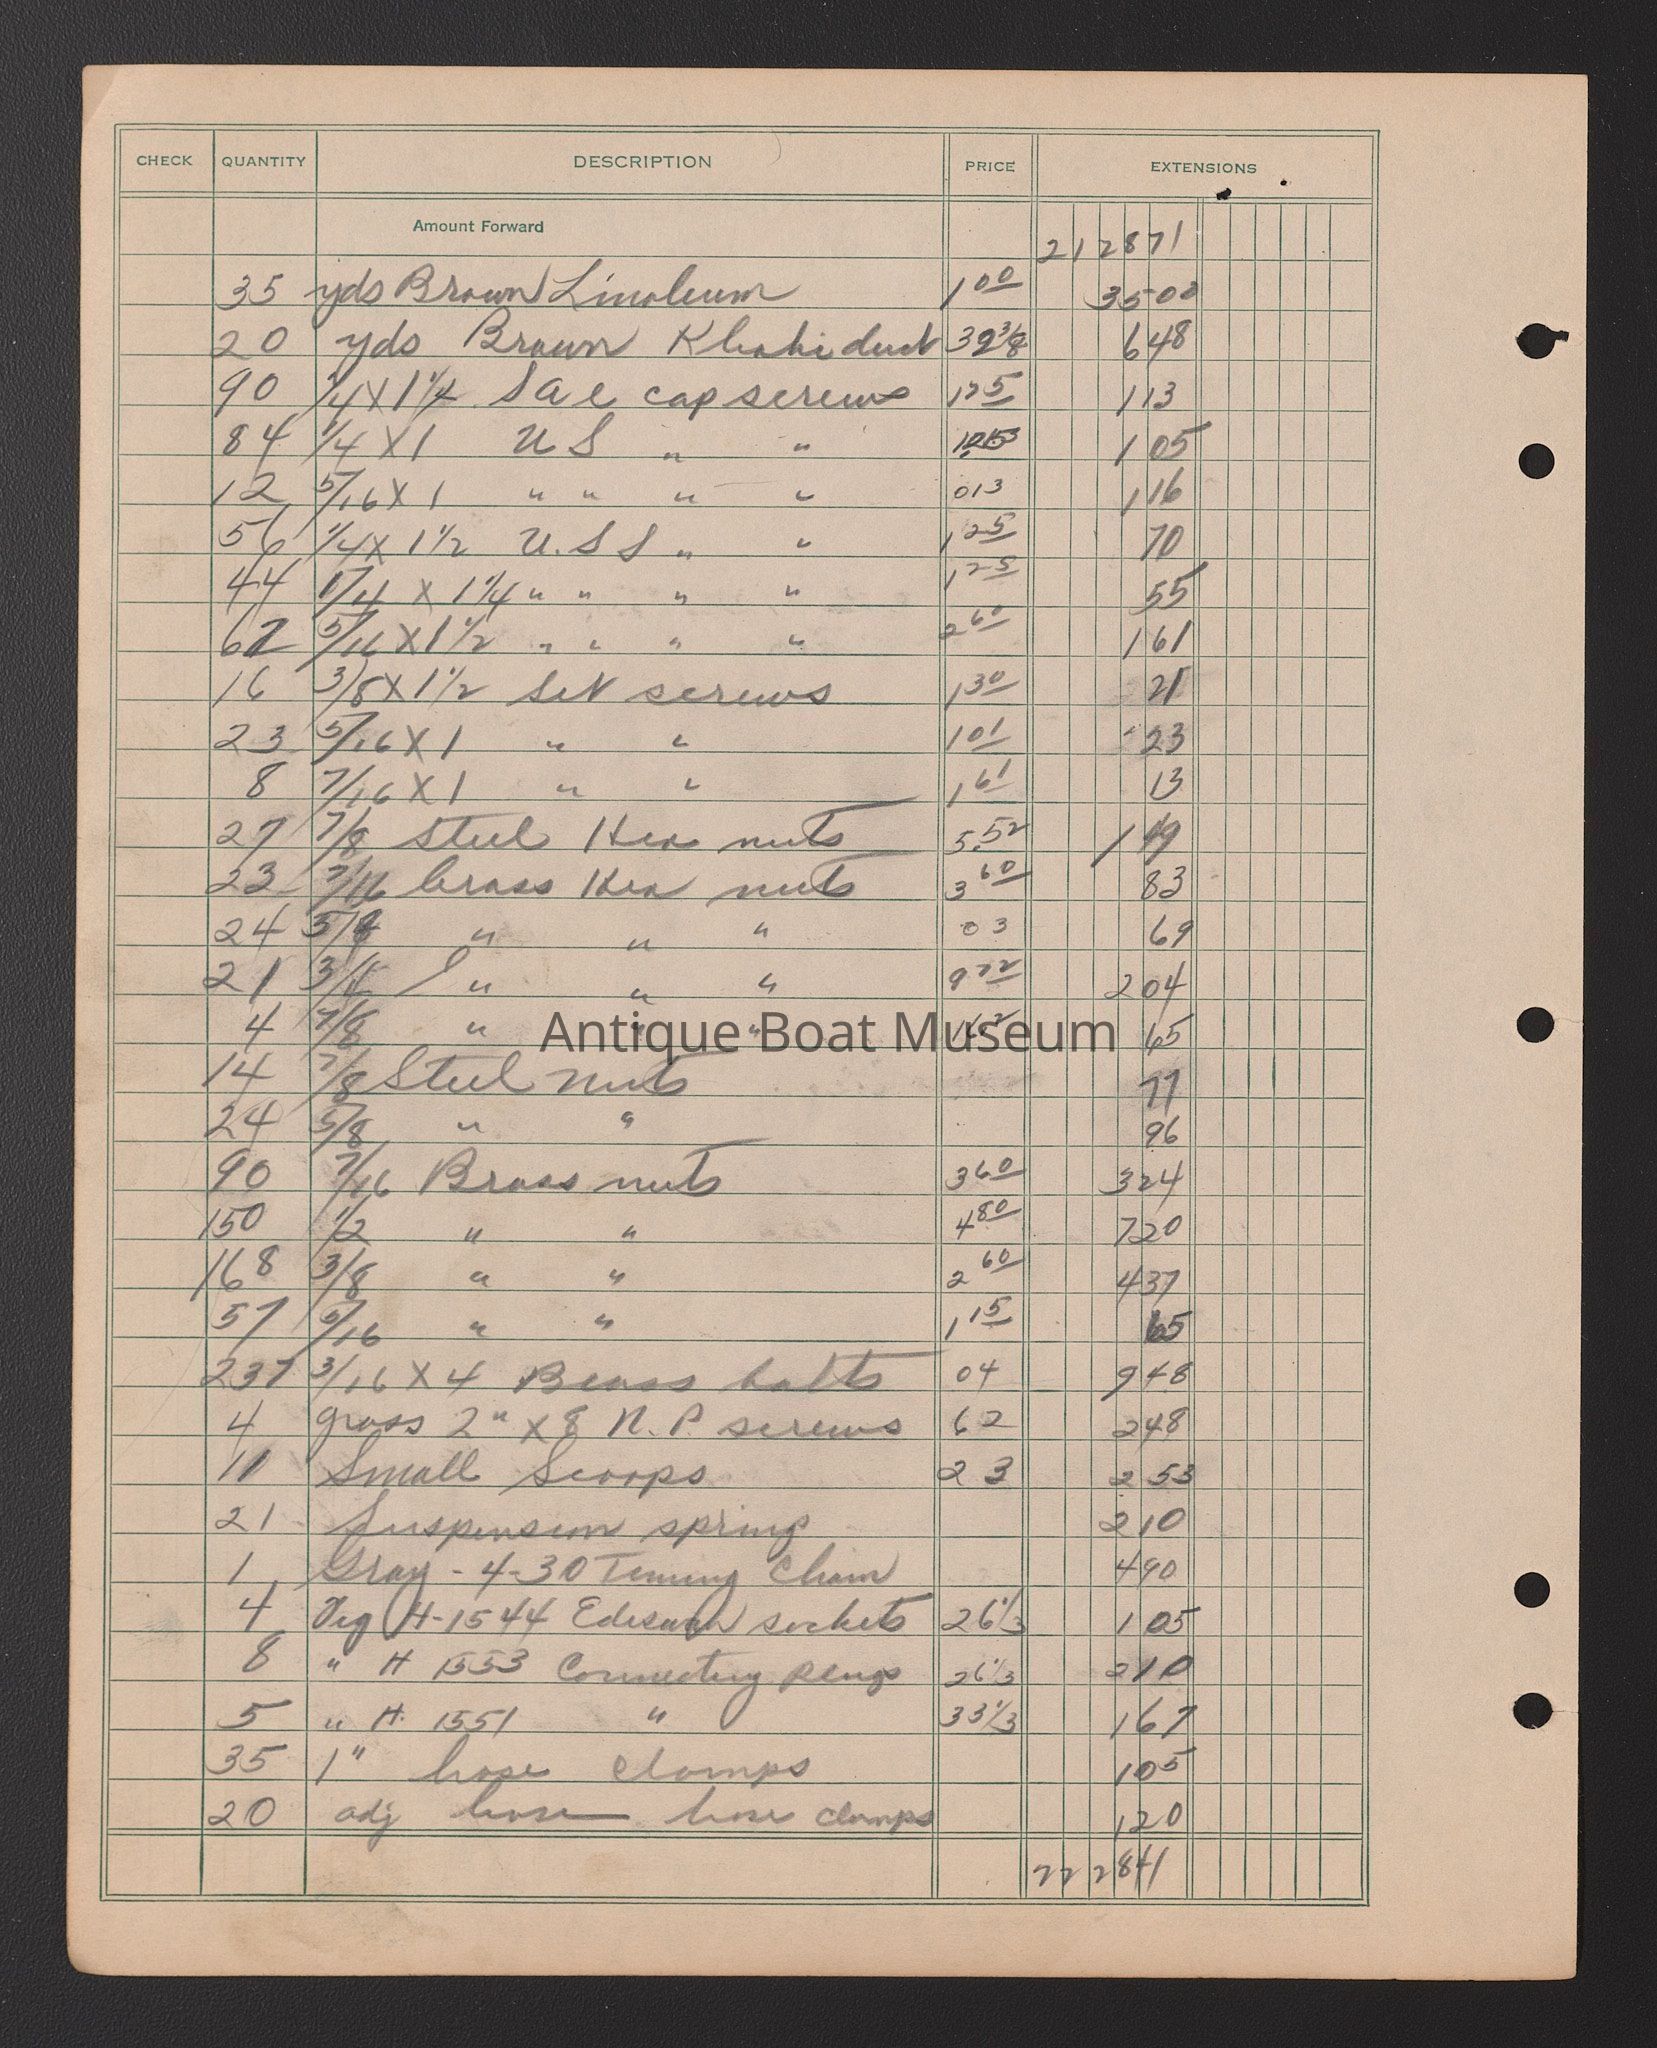 CHECK QUANTITY DESCRIPTION PRICE EXTENSIONS
Amount Forward 212871
35 yds Brown Linoleum 1 00 3500
20 yds Brown Khaki duck 32 3/8 648
90 1/4 X 1 1/4 S a e cap screws 1 25 113
84 1/4 X 1 U S " " 105
12 5/16 X 1 " " " " 013 116
56 1/4 X 1 1/2 U.S S " " 1 25 70
44 1/4 X 1 1/4 " " " " 1 25 55
62 5/16 X 1 1/2 " " " " 2 60 161
16 3/8 X 1 1/2 Set screws 1 30 21
23 5/16 X 1 " " 1 01 23
8 7/16 X 1 " " 1 61 13
27 7/8 Steel Hex nuts 5.52 149
23 7/16 brass Hex nuts 3 60 83
24 5/8 " " " 03 69
21 3/4 " " " 9 72 204
4 7/8 " " " 65
Antique Boat Museum
14 7/8 Steel nuts 77
24 5/8 " " 96
90 7/16 Brass nuts 3 60 324
150 1/2 " " 4 80 720
168 3/8 " " 2 60 437
57 5/16 " " 1 15 65
237 3/16 X 4 Brass bolts 04 948
4 gross 2" X 8 N.P. screws 62 248
11 Small Scoops 23 253
21 Suspension spring 210
1 Gray - 4-30 Timing Chain 490
4 Fig H-1544 sockets 26 1/3 105
8 " H 1553 Connecting plugs 26 1/3 210
5 " H. 1551 " 33 1/3 167
35 1" hose clamps 105
20 adj hose hose clamps 120
222841